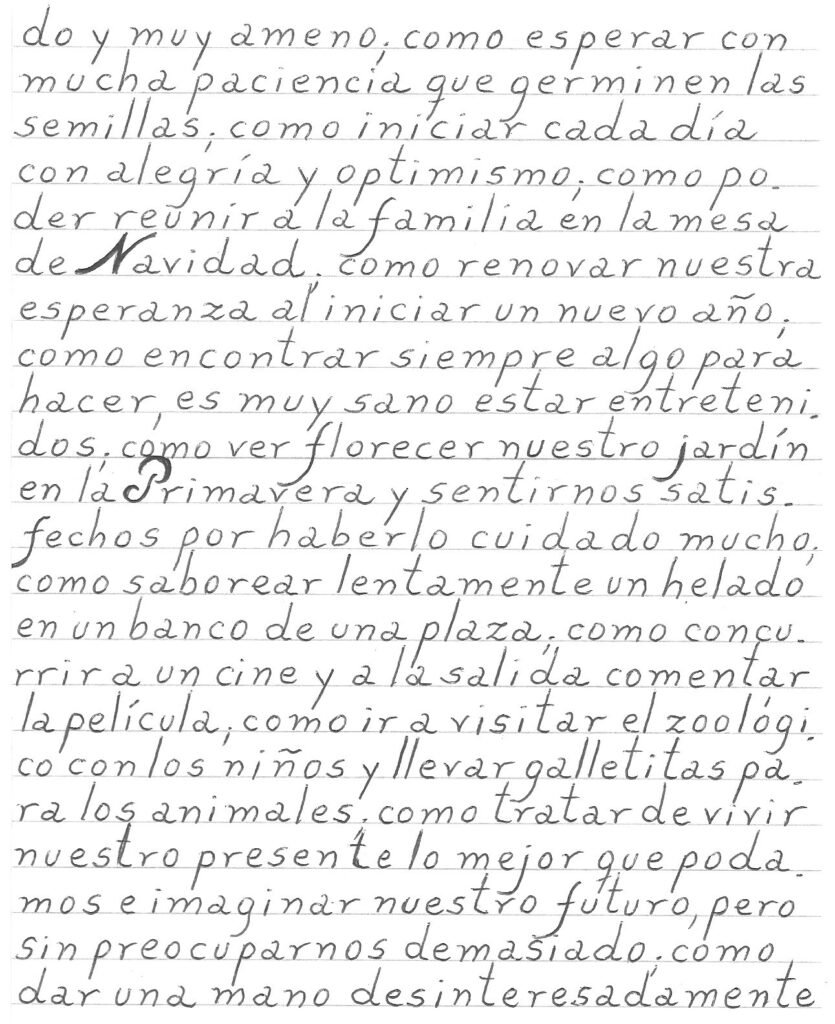 do y muy ameno; como esperar con
mucha paciencia que germinen las
semillas; como iniciar cada día
con alegría y optimismo; como po-
der reunir a la familia en la mesa
de Navidad; como renovar nuestra
esperanza al iniciar un nuevo año;
como encontrar siempre algo para
hacer, es muy sano estar entreteni-
dos; como ver florecer nuestro jardín
en la Primavera y sentirnos satis-
fechos por haberlo cuidado mucho;
como saborear lentamente un helado
en un banco de una plaza; como concu-
rrir a un cine y a la salida comentar
la película; como ir a visitar el zoológi-
co con los niños y llevar galletitas pa-
ra los animales; como tratar de vivir
nuestro presente lo mejor que poda-
mos e imaginar nuestro futuro, pero
sin preocuparnos demasiado; como
dar una mano desinteresadamente